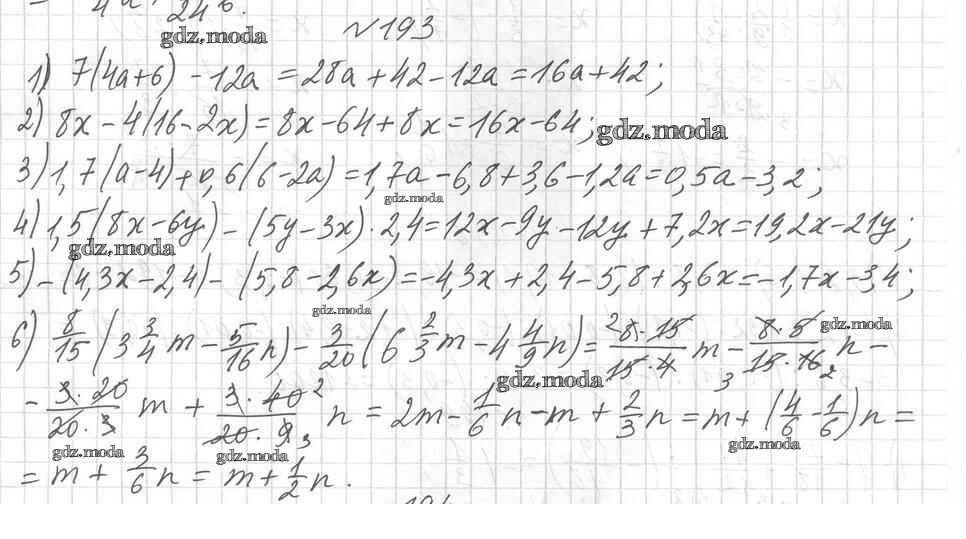 4 24 6.
gdz.moda
№193
1) 7(4a+6) - 12a = 28a + 42 - 12a = 16a + 42;
2) 8x - 4(16 - 2x) = 8x - 64 + 8x = 16x - 64; gdz.moda
3) 1,7(a-4) + 0,6(6-2a) = 1,7a - 6,8 + 3,6 - 1,2a = 0,5a - 3,2;
gdz.moda
4) 1,5(8x - 6y) - (5y - 3x) · 2,4 = 12x - 9y - 12y + 7,2x = 19,2x - 21y;
gdz.moda
5) -(4,3x - 2,4) - (5,8 - 2,6x) = -4,3x + 2,4 - 5,8 + 2,6x = -1,7x - 3,4;
gdz.moda
6) 8/15 (3 3/4 m - 5/16 n) - 3/20 (6 2/3 m - 4 4/9 n) = 2 8·15/15·4 m - 8·5/15·16 n - gdz.moda
gdz.moda 3 2
- 3·20/20·3 m + 3·40/20·9 n = 2m - 1/6 n - m + 2/3 n = m + (4/6 - 1/6) n =
2 3
gdz.moda gdz.moda gdz.moda
= m + 3/6 n = m + 1/2 n.